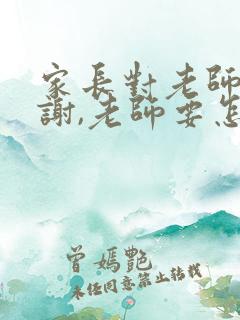 家長對老師
謝,老師要怎
曾媽艷
未经同意禁止转载